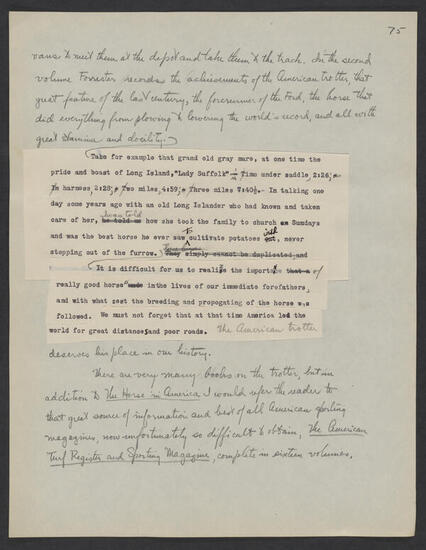 75
vans to meet them at the depot and take them to the track. In the second
volume Forrester records the achievements of the American trotter, that
great feature of the last century, the forerunner of the Ford, the horse that
did everything from plowing to lowering the world's record, and all with
great stamina and docility.
Take for example that grand old gray mare, at one time the
pride and boast of Long Island, "Lady Suffolk" - Time under saddle, 2:26;
In harness, 2:28; Two miles, 4:59; Three miles 7:40½. In talking one
day some years ago with an old Long Islander who had known and taken
was told
care of her, he told us how she took the family to church on Sundays
to with
and was the best horse he ever saw cultivate potatoes, never
stepping out of the furrow. They simply cannot be duplicated, and
It is difficult for us to realize the importance that a of
really good horse made in the lives of our immediate forefathers,
and with what zest the breeding and propogating of the horse was
followed. We must not forget that at that time America led the
world for great distances, and poor roads. The American trotter
deserves his place in our history.
There are very many books on the trotter, but in
addition to The Horse in America I would refer the reader to
that great source of information and best of all American sporting
magazines, now unfortunately so difficult to obtain, The American
Turf Register and Sporting Magazine, complete in sixteen volumes.